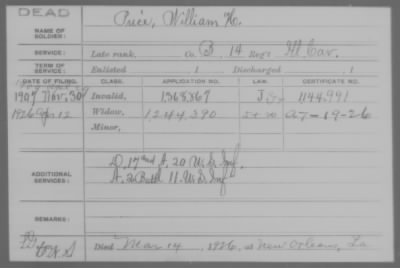 DEAD
NAME OF SOLDIER: Price, William H.
SERVICE: Late rank, Co. B 14 Reg't Ill Cav.
TERM OF SERVICE: Enlisted , 1 Discharged , 1
DATE OF FILING. CLASS. APPLICATION NO. LAW. CERTIFICATE NO.
1907 Nov. 30 Invalid, 1368.867 1144.991
1926 Apr 12 Widow, 1244390 A 7-19-26
Minor,
ADDITIONAL SERVICES: D. 17 A. 20 U.S. Inf.
A. 2 Batt 11. U.S. Inf
REMARKS:
Died Mar 14, 1926, at New Orleans, La